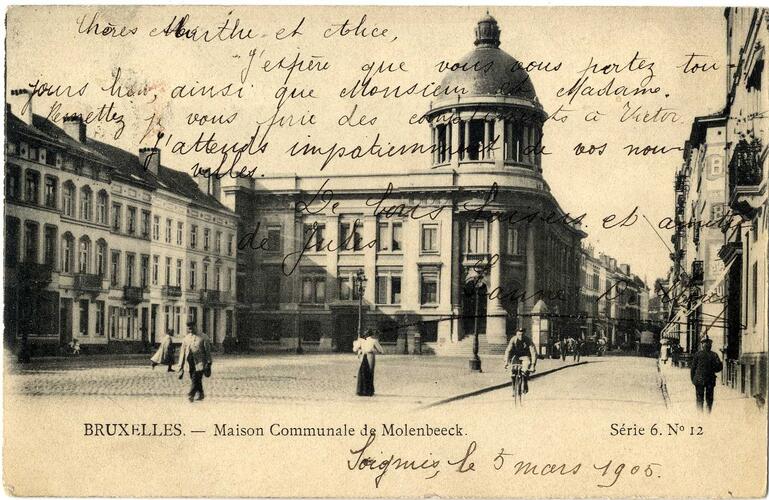 Chères Marthe et Alice,
J'espère que vous vous portez tou-
jours bien, ainsi que Monsieur et Madame.
Remettez je vous prie des compliments à Victor.
J'attends impatiemment de vos nou-
velles.
De bons baisers et amitiés
de Jules.
Jeanne
BRUXELLES. — Maison Communale de Molenbeeck.
Série 6. Nº 12
Soignies, le 5 mars 1905.